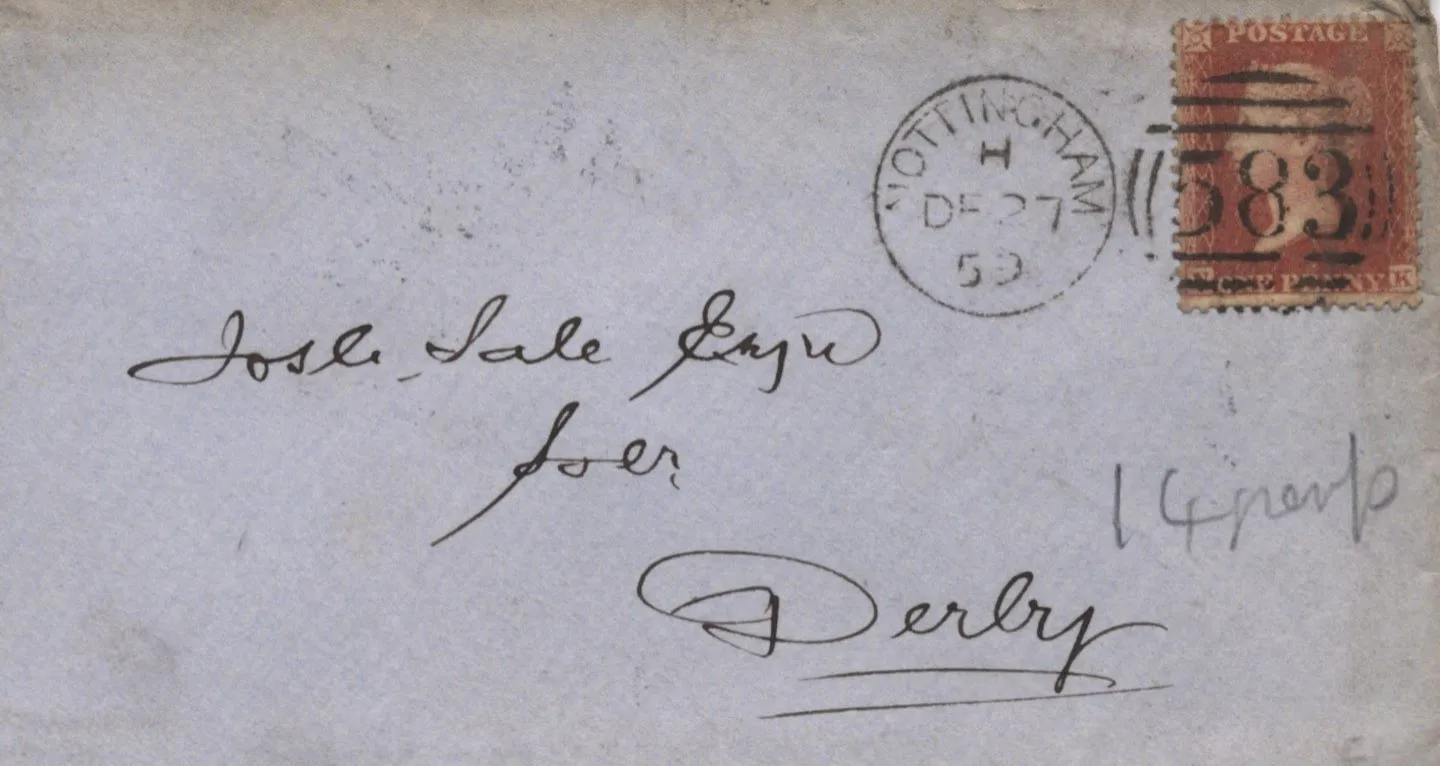 POSTAGE
NOTTINGHAM
H
DE 27
59
583
ONE PENNY K
Sale Esqre
Derby
14 perf